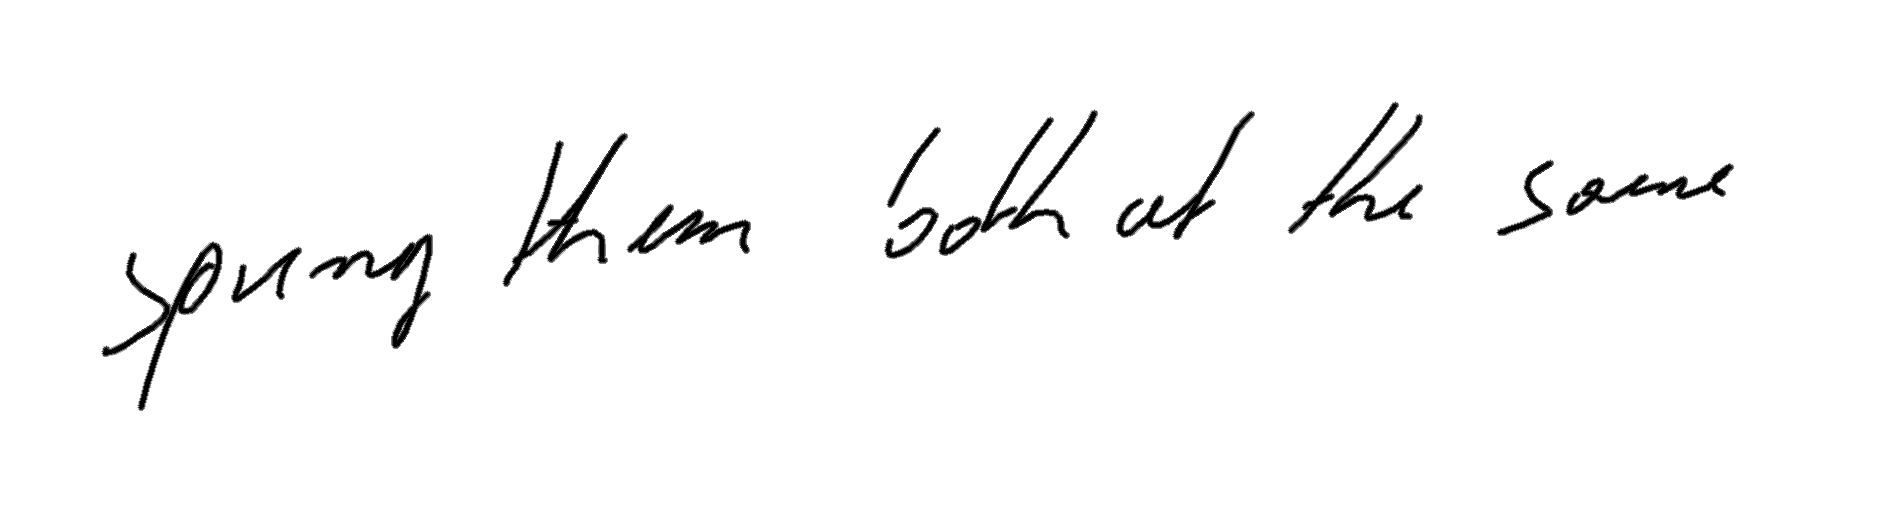 spring them both at the same